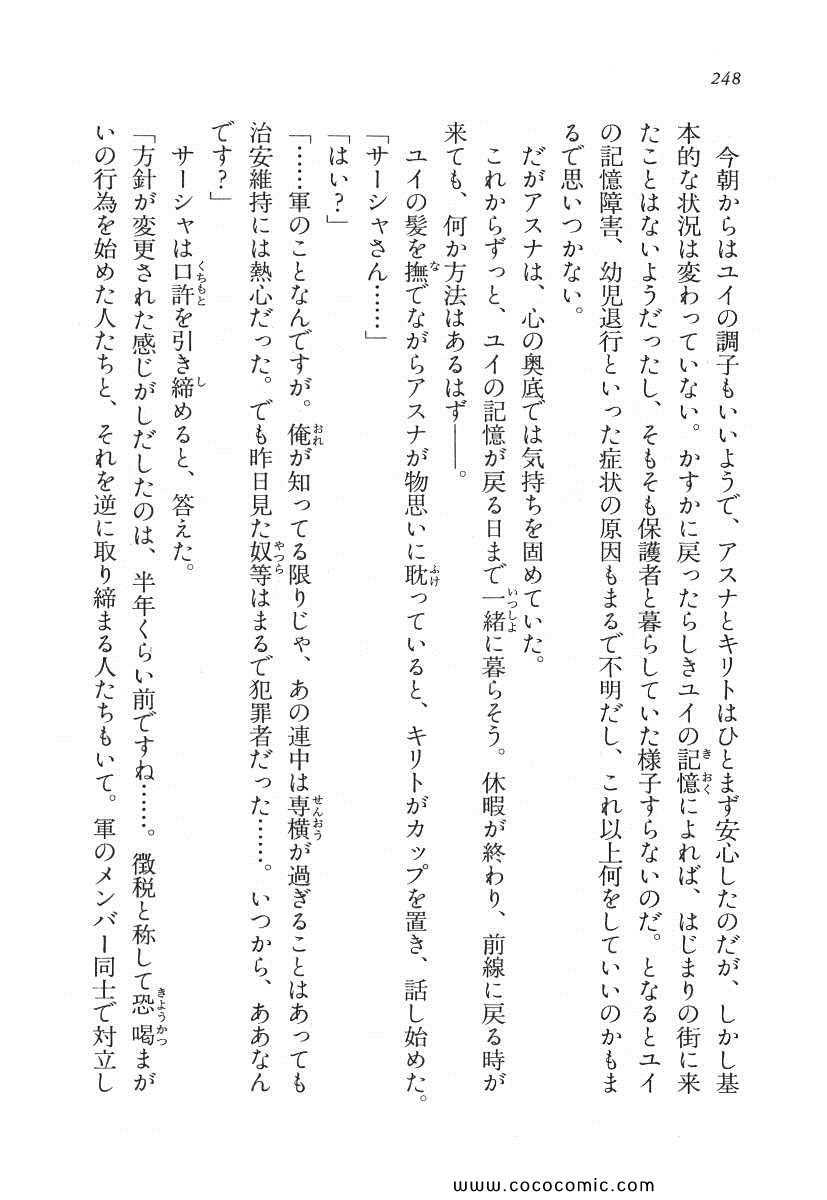 248
今朝からはユイの調子もいいようで、アスナとキリトはひとまず安心したのだが、しかし基
本的な状況は変わっていない。かすかに戻ったらしきユイの記憶によれば、はじまりの街に来
たことはないようだったし、そもそも保護者と暮らしていた様子すらないのだ。となるとユイ
の記憶障害、幼児退行といった症状の原因もまるで不明だし、これ以上何をしていいのかもま
るで思いつかない。
だがアスナは、心の奥底では気持ちを固めていた。
これからずっと、ユイの記憶が戻る日まで一緒に暮らそう。休暇が終わり、前線に戻る時が
来ても、何か方法はあるはず――。
ユイの髪を撫でながらアスナが物思いに耽っていると、キリトがカップを置き、話し始めた。
「サーシャさん……」
「はい?」
「……軍のことなんですが。俺が知ってる限りじゃ、あの連中は専横が過ぎることはあっても
治安維持には熱心だった。でも昨日見た奴等はまるで犯罪者だった……。いつから、ああなん
です?」
サーシャは口許を引き締めると、答えた。
「方針が変更された感じがしだしたのは、半年くらい前ですね……。徴税と称して恐喝まが
いの行為を始めた人たちと、それを逆に取り締まる人たちもいて。軍のメンバー同士で対立し
www.cococomic.com